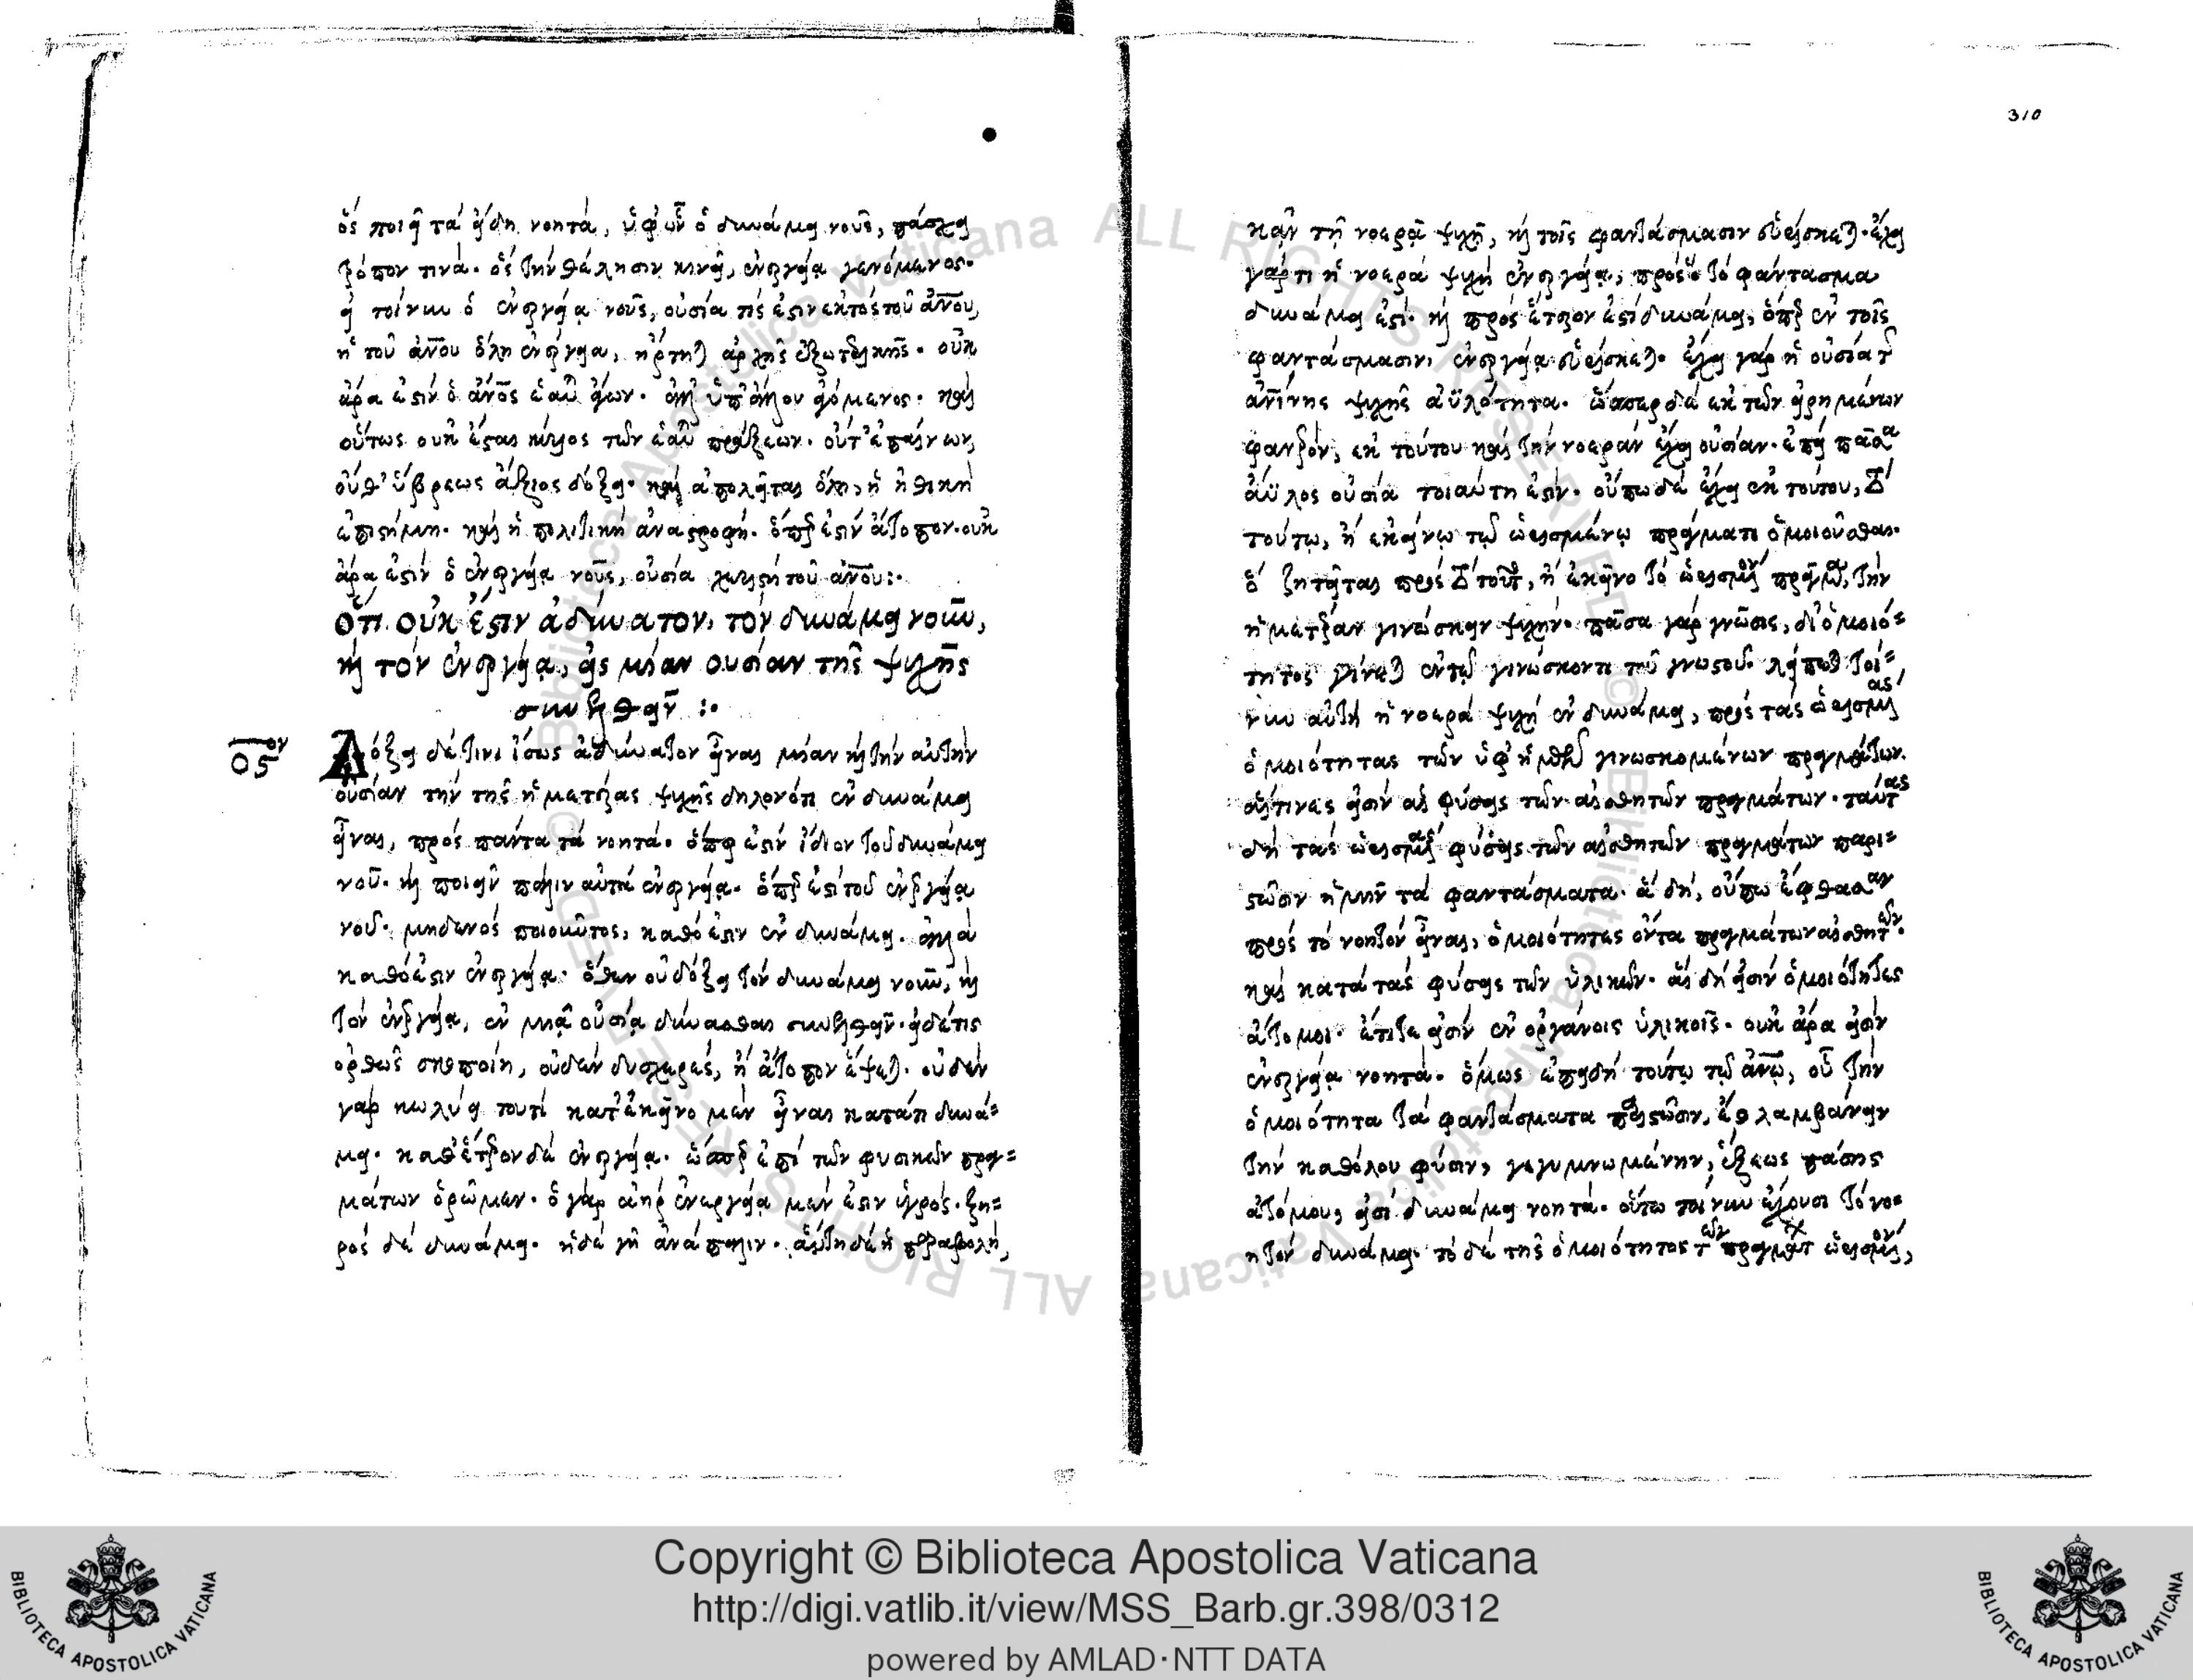 ὅς ποιεῖ τὰ εἴδη νοητά, ὑφ' ὧν ὁ δυνάμει νοῦς, πάσχει
τρόπον τινά. ὅς τὴν θέλησιν κινεῖ, ἐνεργείᾳ γενόμενος.
εἰ τοίνυν ὁ ἐνεργείᾳ νοῦς, οὐσία τίς ἐστιν ἐκτὸς τοῦ ἀνου,
ἡ τοῦ ἀνου ὅλη ἐνέργεια, ἤρτηται ἀρχῆς ἐξωτερικῆς. οὐκ
ἄρα ἐστὶν ὁ ἀνος ἑαυτὸν ἄγων. ἀλλ' ὑπ' ἄλλου ἀγόμενος. καὶ
οὕτως οὐκ ἔσται κύριος τῶν ἑαυτοῦ πράξεων. οὔτ' ἐπαίνων
οὔθ' ὕβρεως ἄξιος δόξει. καὶ ἀπολεῖται ὅλη, ἡ ἠθικὴ
ἐπιστήμη. καὶ ἡ πολιτικὴ ἀναστροφή. ὅπερ ἐστὶν ἄτοπον. οὐκ
ἄρα ἐστὶν ὁ ἐνεργείᾳ νοῦς, οὐσία χωριστὴ τοῦ ἀνου:
Ὅτι οὐκ ἔστιν ἀδύνατον, τὸν δυνάμει νοῦν,
καὶ τὸν ἐνεργείᾳ, εἰς μίαν οὐσίαν τῆς ψυχῆς
συνελθεῖν :
οϛον Δόξει δέ τινι ἴσως ἀδύνατον εἶναι μίαν καὶ τὴν αὐτὴν
οὐσίαν τὴν τῆς ἡμετέρας ψυχῆς δηλονότι ἐν δυνάμει
εἶναι, πρὸς πάντα τὰ νοητά. ὅπερ ἐστὶν ἴδιον τοῦ δυνάμει
νοῦ. καὶ ποιεῖν πάλιν αὐτὰ ἐνεργείᾳ. ὅπερ ἐστὶ τοῦ ἐνεργείᾳ
νοῦ. μηδενὸς ποιοῦντος, καθό ἐστιν ἐν δυνάμει. ἀλλὰ
καθό ἐστιν ἐνεργείᾳ. ὅθεν οὐ δόξει τὸν δυνάμει νοῦν, καὶ
τὸν ἐνεργείᾳ, ἐν μιᾷ οὐσίᾳ δύνασθαι συνελθεῖν. εἰ δέ τις
ὀρθῶς σκοποίη, οὐδὲν δυσχερές, ἢ ἄτοπον ἕψεται. οὐδὲν
γὰρ κωλύει τουτὶ κατ' ἐκεῖνο μὲν εἶναι κατάτι δυνά=
μει. καθ' ἕτερον δὲ ἐνεργείᾳ. ὥσπερ ἐπὶ τῶν φυσικῶν πραγ=
μάτων ὁρῶμεν. ὁ γὰρ ἀὴρ ἐνεργείᾳ μέν ἐστιν ὑγρός. ξη=
ρὸς δὲ δυνάμει. ἡ δὲ γῆ ἀνάπαλιν. αὕτη δὲ ἡ παραβολή,
310
κἀν τῇ νοερᾷ ψυχῇ, καὶ τοῖς φαντάσμασιν εὑρίσκεται. ἔχει
γάρ τι ἡ νοερὰ ψυχὴ ἐνεργείᾳ, πρὸς ὃ τὸ φάντασμα
δυνάμει ἐστί. καὶ πρὸς ἕτερον ἐστὶ δυνάμει, ὅπερ ἐν τοῖς
φαντάσμασιν, ἐνεργείᾳ εὑρίσκεται. ἔχει γὰρ ἡ οὐσία τ
ἀνίνης ψυχῆς ἀϋλότητα. ὥσπερ δὲ ἐκ τῶν εἰρημένων
φανερόν, ἐκ τούτου καὶ τὴν νοερὰν ἔχει οὐσίαν. ἐπεὶ πᾶσα
ἄϋλος οὐσία τοιαύτη ἐστίν. οὔπω δὲ ἔχει ἐκ τούτου,
τούτῳ, ἢ ἐκείνῳ τῷ ὡρισμένῳ πράγματι ὁμοιοῦσθαι.
ὃ ζητεῖται πρὸς τοῦτο, ἢ ἐκεῖνο τὸ ὡρισμένον πρᾶγμα, τὴν
ἡμετέραν γινώσκειν ψυχήν. πᾶσα γὰρ γνῶσις, δι' ὁμοιό=
τητος γίνεται ἐν τῷ γινώσκοντι τοῦ γνωστοῦ. λείπεται τοί=
νυν αὐτὴ ἡ νοερὰ ψυχὴ ἐν δυνάμει, πρὸς τὰς ὡρισμένας
ὁμοιότητας τῶν ὑφ' ἡμῶν γινωσκομένων πραγμάτων.
αἵτινες εἰσὶν αἱ φύσεις τῶν αἰσθητῶν πραγμάτων. ταύτας
δὴ τὰς ὡρισμένας φύσεις τῶν αἰσθητῶν πραγμάτων παρι=
στῶσιν ἡμῖν τὰ φαντάσματα. ἃ δή, οὔπω ἔφθασαν
πρὸς τὸ νοητὸν εἶναι, ὁμοιότητες ὄντα πραγμάτων αἰσθητῶν.
καὶ κατὰ τὰς φύσεις τῶν ὑλικῶν. αἳ δή εἰσιν ὁμοιότητες
ἄτομοι. ἔτιτε εἰσὶν ἐν ὀργάνοις ὑλικοῖς. οὐκ ἄρα εἰσὶν
ἐνεργείᾳ νοητά. ὅμως ἐπειδὴ τούτῳ τῷ ἀνῳ, οὗ τὴν
ὁμοιότητα τὰ φαντάσματα παριστῶσιν, ἔστι λαμβάνειν
τὴν καθόλου φύσιν, γεγυμνωμένην, ἕξεως πάσης
ἀτόμου, εἰσὶ δυνάμει νοητά. οὕτω τοίνυν ἔχουσι τὸ νο=
ητὸν δυνάμει. τὸ δὲ τῆς ὁμοιότητος τῶν πραγμάτ ὡρισμένον,
Copyright © Biblioteca Apostolica Vaticana
http://digi.vatlib.it/view/MSS_Barb.gr.398/0312
powered by AMLAD·NTT DATA
BIBLIOTECA APOSTOLICA VATICANA
BIBLIOTECA APOSTOLICA VATICANA